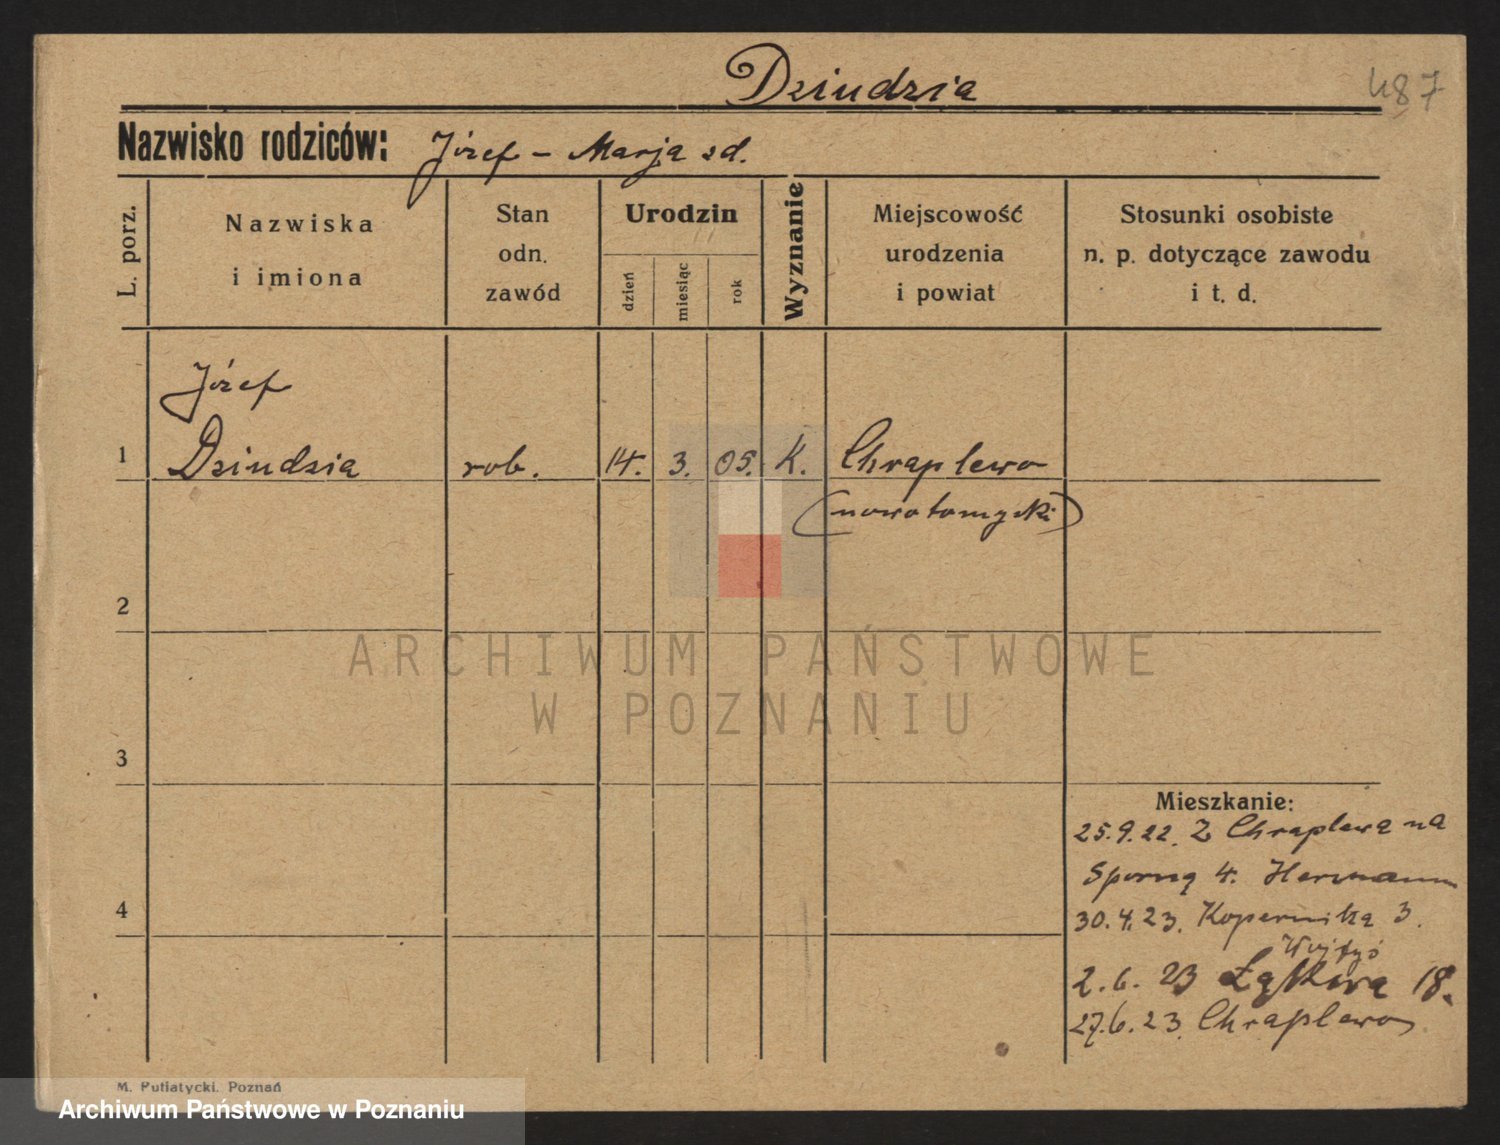 Dziudzia
487
Nazwisko rodziców: Józef – Marja zd.
L. porz.
Nazwiska
i imiona
Stan
odn.
zawód
Urodzin
dzień
miesiąc
rok
Wyznanie
Miejscowość
urodzenia
i powiat
Stosunki osobiste
n. p. dotyczące zawodu
i t. d.
Józef
1 Dziudzia rob. 14. 3. 05. K. Chraplewo
(nowotomyski)
2
ARCHIWUM PAŃSTWOWE
W POZNANIU
3
Mieszkanie:
25.9.22. Z Chraplewa na
Sporną 4. Hermann
4
30.4.23. Kopernika 3.
2.6.23 Łąkowa 18.
27.6.23. Chraplewo
M. Putiatycki. Poznań
Archiwum Państwowe w Poznaniu